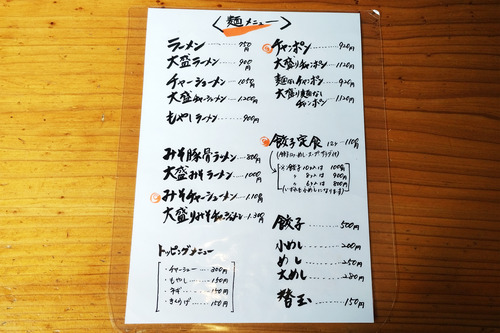 麺メニュー
ラーメン 750円
大盛ラーメン 900円
チャーシューメン 1050円
大盛チャーシューメン 1,200円
もやしラーメン 900円
みそ豚骨ラーメン 800円
大盛みそラーメン 1000円
みそチャーシューメン 1,110円
大盛りみそチャーシューメン 1,300円
トッピングメニュー
・チャーシュー 300円
・もやし 150円
・ネギ 150円
・きくらげ 150円
チャンポン 920円
大盛りチャンポン 1120円
麺なしチャンポン 920円
大盛り麺なしチャンポン 1120円
餃子定食 12ケ 1100円
※餃子10ケは 1000円
〃 8ケは 900円
〃 6ケは 800円
(いずれも小めしになります)
餃子 500円
小めし 200円
めし 250円
大めし 280円
替玉 150円